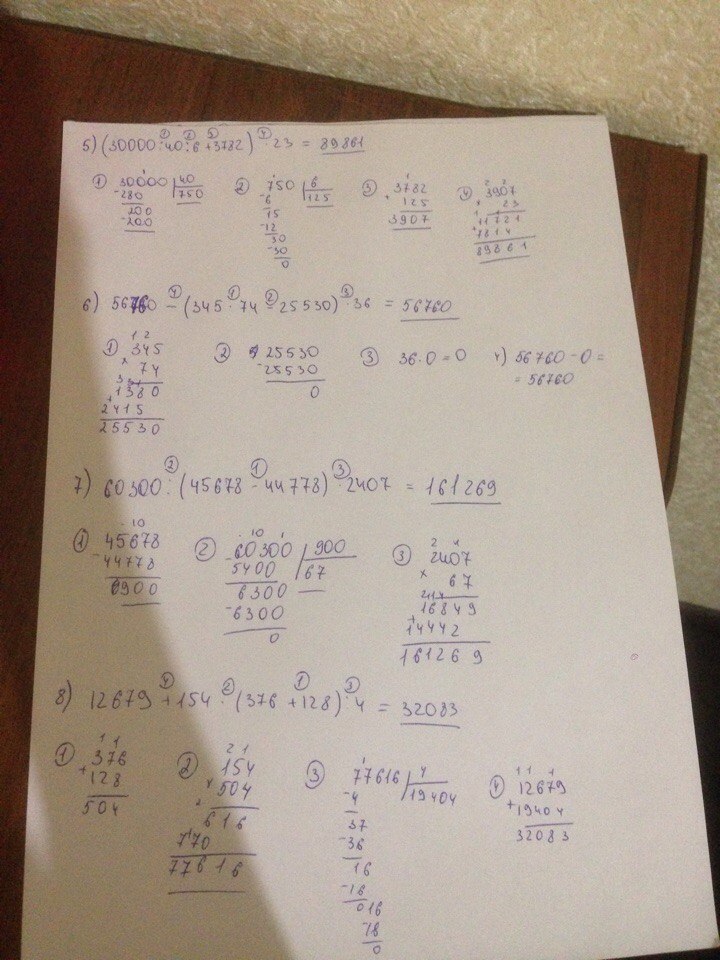 5) (30000 : 40 : 6 + 3782) · 23 = 89861
① 30000 | 40
-280 | 750
200
-200
② 750 | 6
-6 | 125
15
-12
30
-30
0
③ 3782
+ 125
3907
④ 3907
× 23
11721
+7814
89861
6) 56760 - (345 · 74 - 25530) · 36 = 56760
① 345
× 74
1380
+2415
25530
② 25530
-25530
0
③ 36 · 0 = 0
4) 56760 - 0 =
= 56760
7) 60300 : (45678 - 44778) · 2407 = 161269
① 45678
-44778
900
② 60300 | 900
5400 | 67
6300
-6300
0
③ 2407
× 67
16849
+14442
161269
8) 12679 + 154 · (376 + 128) : 4 = 32083
① 376
+128
504
② 154
× 504
616
770
77616
③ 77616 | 4
-4 | 19404
37
-36
16
-16
016
16
0
④ 12679
+19404
32083